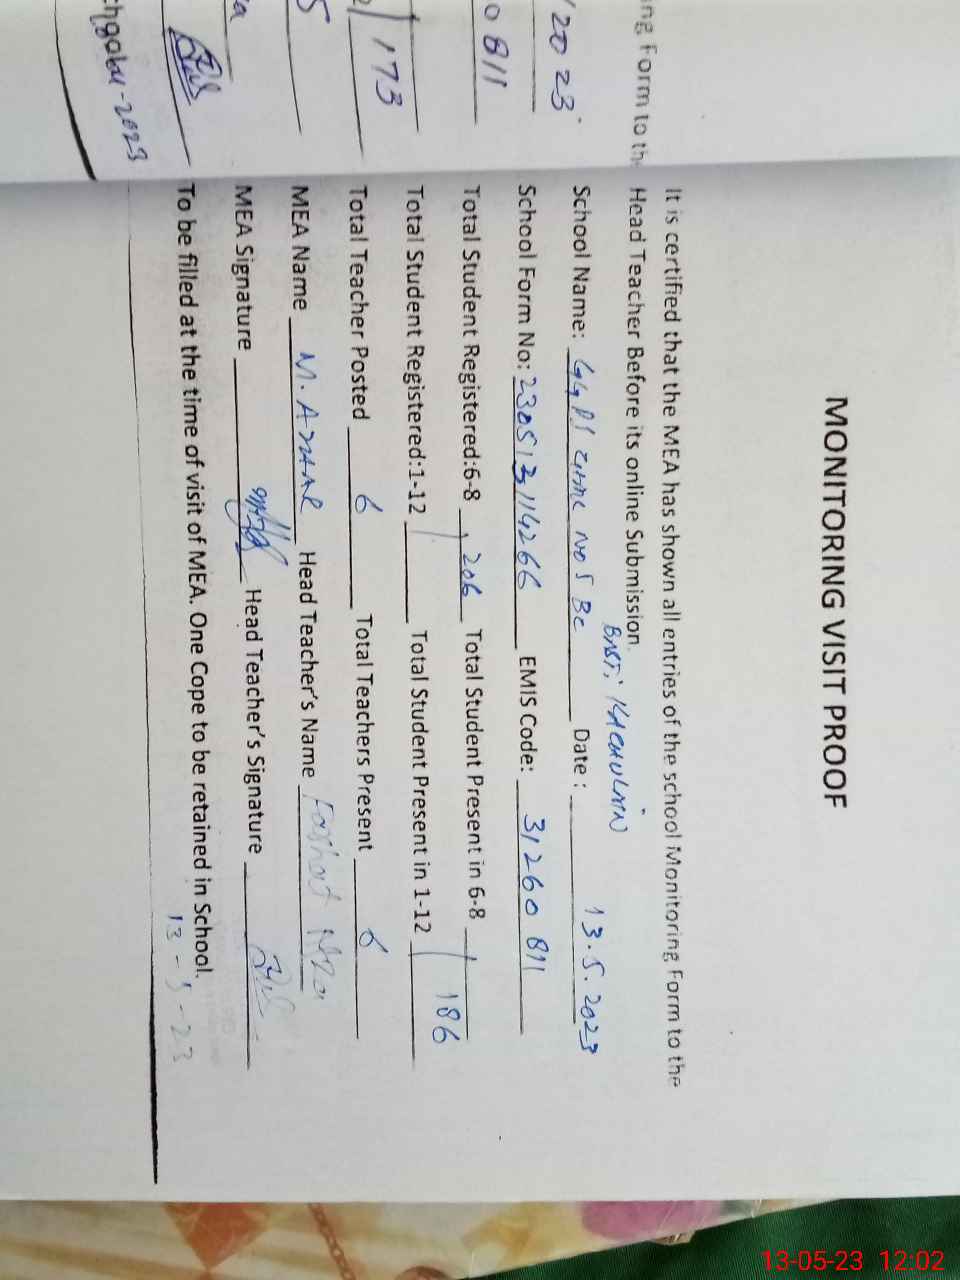 MONITORING VISIT PROOF
It is certified that the MEA has shown all entries of the school Monitoring Form to the
Head Teacher Before its online Submission.
School Name: No 5 Bc Basti Date : 13.5.2023
School Form No: EMIS Code: 31260811
Total Student Registered:6-8 206 Total Student Present in 6-8
Total Student Registered:1-12 Total Student Present in 1-12 186
Total Teacher Posted 6 Total Teachers Present 6
MEA Name M. AZHAR Head Teacher's Name
MEA Signature Head Teacher's Signature
To be filled at the time of visit of MEA. One Cope to be retained in School.
13-5-23
ing Form to th
/2023
0811
173
5
a
-2023
13-05-23 12:02